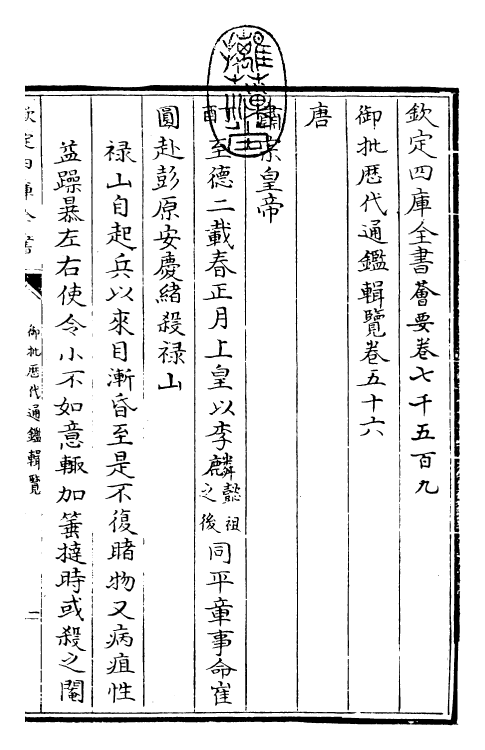 欽定四庫全書薈要卷七千五百九
御批歷代通鑑輯覽卷五十六
唐
肅宗皇帝
酉丁至德二載春正月上皇以李麟懿祖之後同平章事命崔
圓赴彭原安慶緒殺祿山
祿山自起兵以來目漸昏至是不復睹物又病疽性
益躁暴左右使令小不如意輙加箠撻時或殺之閹
欽定四庫全書
御批歷代通鑑輯覽